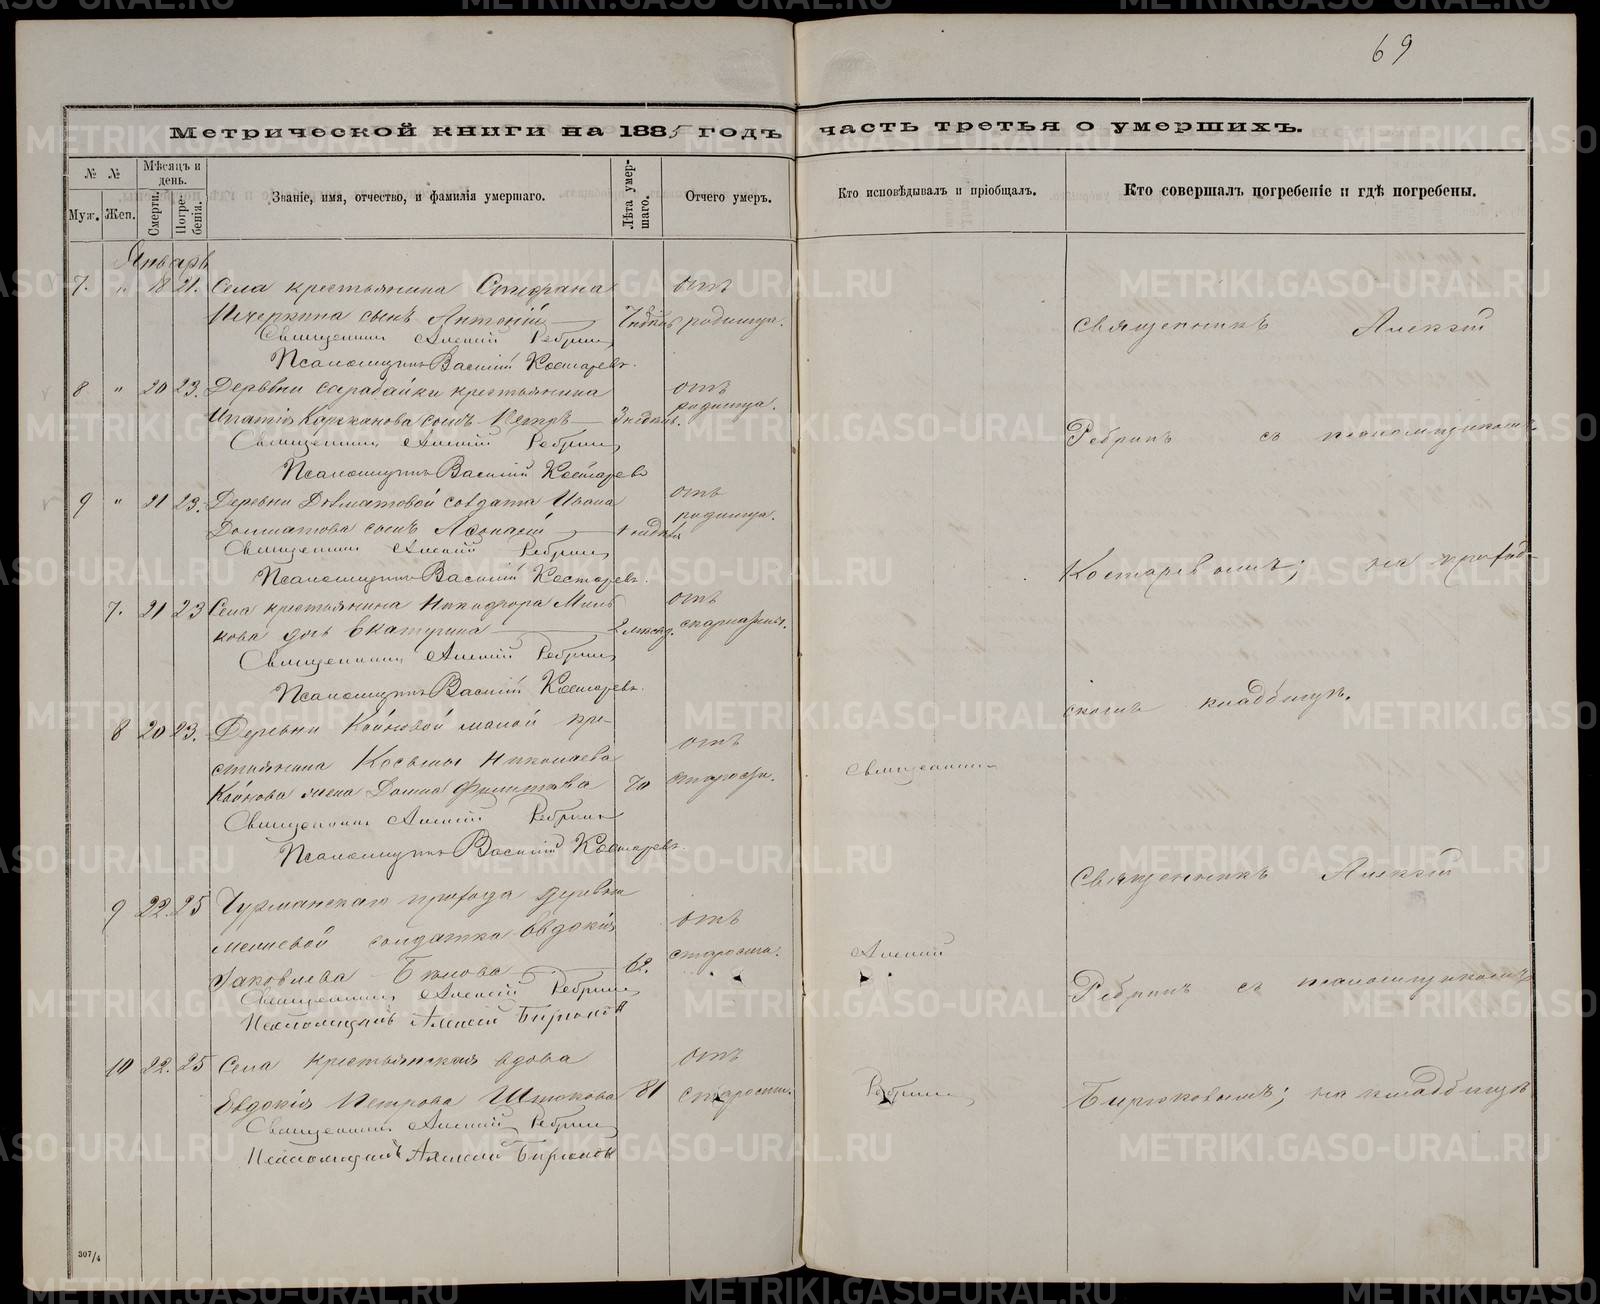 69
Метрической книги на 1885 годъ часть третья о умершихъ.
№ № Мѣсяцъ и день. Званіе, имя, отчество, и фамилія умершаго. Лѣта умер-шаго. Отчего умеръ. Кто исповѣдывалъ и пріобщалъ. Кто совершалъ погребеніе и гдѣ погребены.
Муж. Жен. Смерти. Погре-бенія.
Январь
7. " 18 21. Села крестьянина Стефана отъ
сынъ Антоній родимца. Священникъ Алексій
Священникъ Алексій Ребринъ
Псаломщикъ Василій Костаревъ.
8 " 20 23. Деревни Сарабайки крестьянина отъ
Игнатія сынъ Петръ 3 недѣль. родимца. Ребринъ съ псаломщикомъ
Священникъ Алексій Ребринъ
Псаломщикъ Василій Костаревъ
9 " 21 23. Деревни Долматовой солдата Ивана отъ
Долматова сынъ родимца.
Священникъ Алексій Ребринъ Костаревымъ; на приход-
Псаломщикъ Василій Костаревъ.
7. 21 23 Села крестьянина Никифора отъ
дочь Екатерина 2 скарлатины.
Священникъ Алексій Ребринъ
Псаломщикъ Василій Костаревъ. скомъ кладбищѣ.
8 20 23. Деревни Койновой малой кре-
стьянина Косьмы Николаева отъ
Койнова жена 70 старости. Священникъ
Священникъ Алексій Ребринъ
Псаломщикъ Василій Костаревъ. Священникъ Алексій
9 22. 25 Чурманскаго прихода деревни
солдатка Евдокія отъ
Яковлева 62. старости. Алексій
Священникъ Алексій Ребринъ Ребринъ съ псаломщикомъ
Псаломщикъ Алексій Бирюковъ
10 22. 25 Села крестьянская вдова отъ
Евдокія Петрова 81 старости. Ребринъ Бирюковымъ; на кладбищѣ
Священникъ Алексій Ребринъ
Псаломщикъ Алексій Бирюковъ
307/4
METRIKI.GASO-URAL.RU